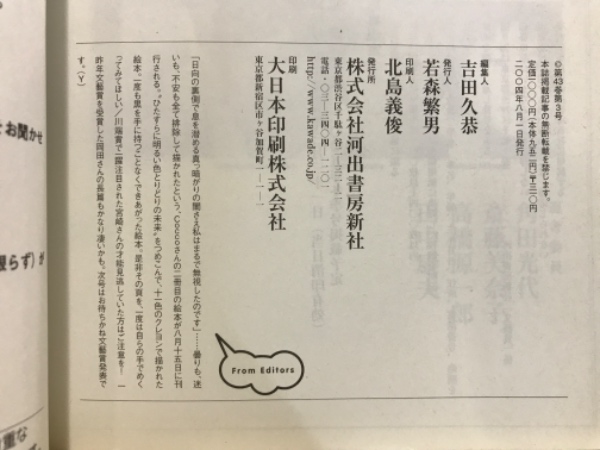 ©第43巻第3号。
本誌掲載記事の無断転載を禁じます。
定価一〇〇〇円(本体九五二円)〒三一〇円
二〇〇四年八月一日発行
編集人
吉田久恭
発行人
若森繁男
印刷人
北島義俊
発行所
株式会社河出書房新社
東京都渋谷区千駄ヶ谷二—三二—二
電話・〇三—三四〇四—一二〇一
http://www.kawade.co.jp/
印刷
大日本印刷株式会社
東京都新宿区市ヶ谷加賀町一—一—一
From Editors
「日向の裏側で息を潜める真っ暗がりの闇さえ私はまるで無視したのです」……曇りも、迷
いも、不安も全て排除して描かれたという、Coccoさんの二冊目の絵本が八月十五日に刊
行される。“ひたすらに明るい色とりどりの未来”をつめこんで、十一色のクレヨンで描かれた
絵本。一度も黒を手に持つことなくできあがった絵本。是非その頁を、一度は自らの手でめく
ってみてほしい／川端賞で一躍注目された宮崎さんの才能見逃していた方はご注意を！ 一
昨年文藝賞を受賞した岡田さんの長篇もかなり凄いかも。次号はお待ちかね文藝賞発表で
す。(Y)
お聞かせ
限らず)が
重な